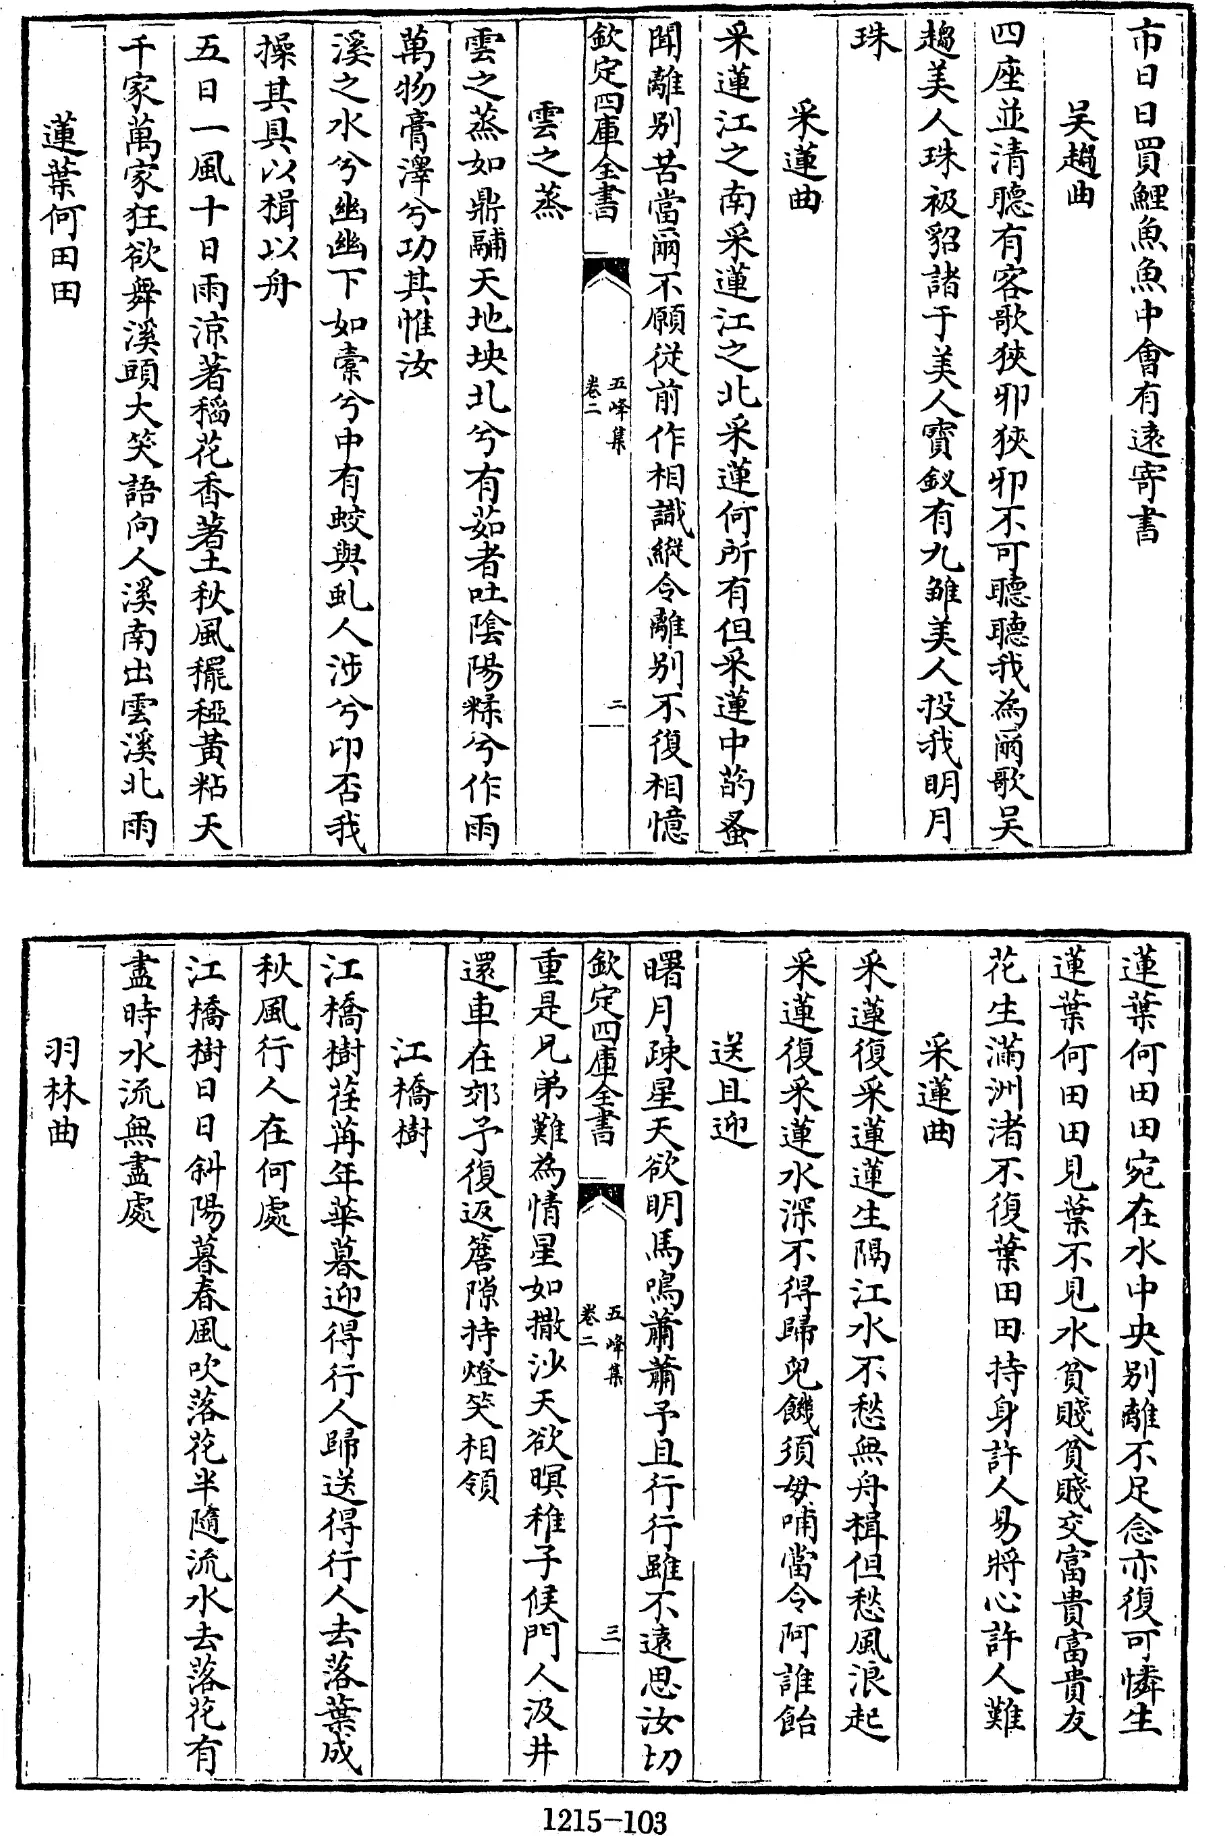 市日日買鯉魚魚中會有遠寄書
吴趨曲
四座並清聽有客歌狹邪狹邪不可聽聽我為爾歌吴
趨美人珠衱貂諸于美人寶釵有九雛美人投我明月
珠
采蓮曲
采蓮江之南采蓮江之北采蓮何所有但采蓮中菂蚤
聞離别苦當爾不願從前作相識縱令離别不復相憶
欽定四庫全書
五峰集
卷二
二
雲之蒸
雲之蒸如鼎鬴天地坱圠兮有茹者吐陰陽糅兮作雨
萬物膏澤兮功其惟汝
溪之水兮幽幽下如橐兮中有蛟與虬人涉兮卬否我
操其具以楫以舟
五日一風十日雨涼著稻花香著土秋風䆉稏黄粘天
千家萬家狂欲舞溪頭大笑語向人溪南出雲溪北雨
蓮葉何田田
蓮葉何田田宛在水中央别離不足念亦復可憐生
蓮葉何田田見葉不見水貧賤貧賤交富貴富貴友
花生滿洲渚不復葉田田持身許人易將心許人難
采蓮曲
采蓮復采蓮蓮生隔江水不愁無舟楫但愁風浪起
采蓮復采蓮水深不得歸兒饑須母哺當令阿誰飴
送且迎
曙月疎星天欲明馬鳴蕭蕭予且行行雖不遠思汝切
欽定四庫全書
五峰集
卷二
三
重是兄弟難為情星如撒沙天欲暝稚子候門人汲井
還車在郊予復返簷隙持燈笑相領
江橋樹
江橋樹荏苒年華暮迎得行人歸送得行人去落葉成
秋風行人在何處
江橋樹日日斜陽暮春風吹落花半隨流水去落花有
盡時水流無盡處
羽林曲
1215-103